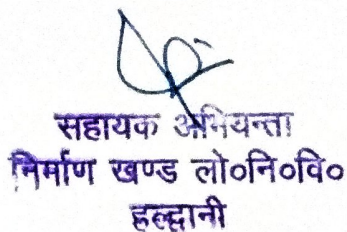 सहायक अभियन्ता
निर्माण खण्ड लो०नि०वि०
हल्द्वानी